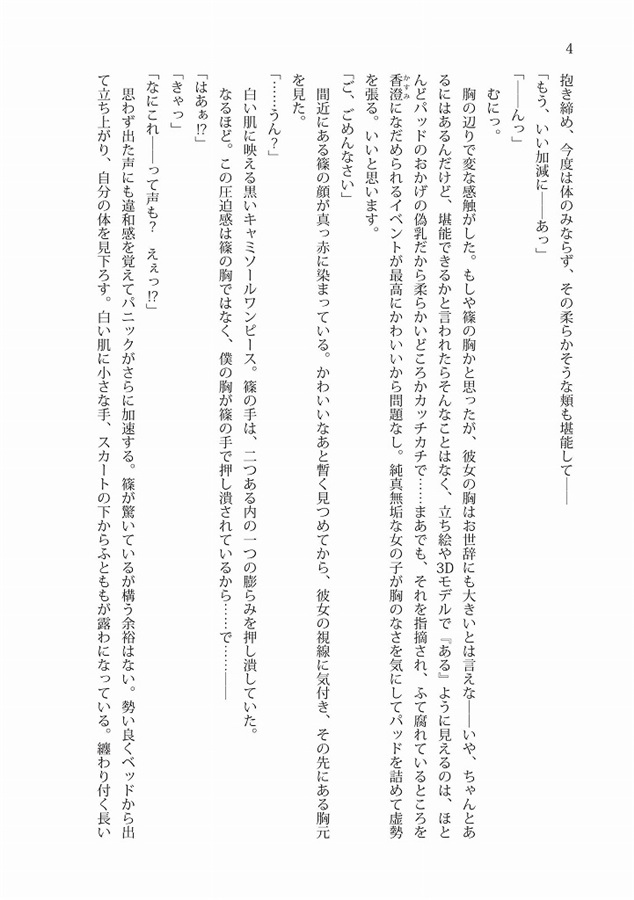 4
抱き締め、今度は体のみならず、その柔らかそうな頬も堪能して――
「もう、いい加減に――あっ」
「――んっ」
むにっ。
胸の辺りで変な感触がした。もしや篠の胸かと思ったが、彼女の胸はお世辞にも大きいとは言えな――いや、ちゃんとあ
るにはあるんだけど、堪能できるかと言われたらそんなことはなく、立ち絵や3Dモデルで『ある』ように見えるのは、ほと
んどパッドのおかげの偽乳だから柔らかいどころかカッチカチで……まあでも、それを指摘され、ふて腐れているところを
香澄かすみになだめられるイベントが最高にかわいいから問題なし。純真無垢な女の子が胸のなさを気にしてパッドを詰めて虚勢
を張る。いいと思います。
「ご、ごめんなさい」
間近にある篠の顔が真っ赤に染まっている。かわいいなあと暫く見つめてから、彼女の視線に気付き、その先にある胸元
を見た。
「……うん？」
白い肌に映える黒いキャミソールワンピース。篠の手は、二つある内の一つの膨らみを押し潰していた。
なるほど。この圧迫感は篠の胸ではなく、僕の胸が篠の手で押し潰されているから……で………――
「はあぁ!?」
「きゃっ」
「なにこれ――って声も？　えぇっ!?」
思わず出た声にも違和感を覚えてパニックがさらに加速する。篠が驚いているが構う余裕はない。勢い良くベッドから出
て立ち上がり、自分の体を見下ろす。白い肌に小さな手、スカートの下からふとももが露わになっている。纏わり付く長い